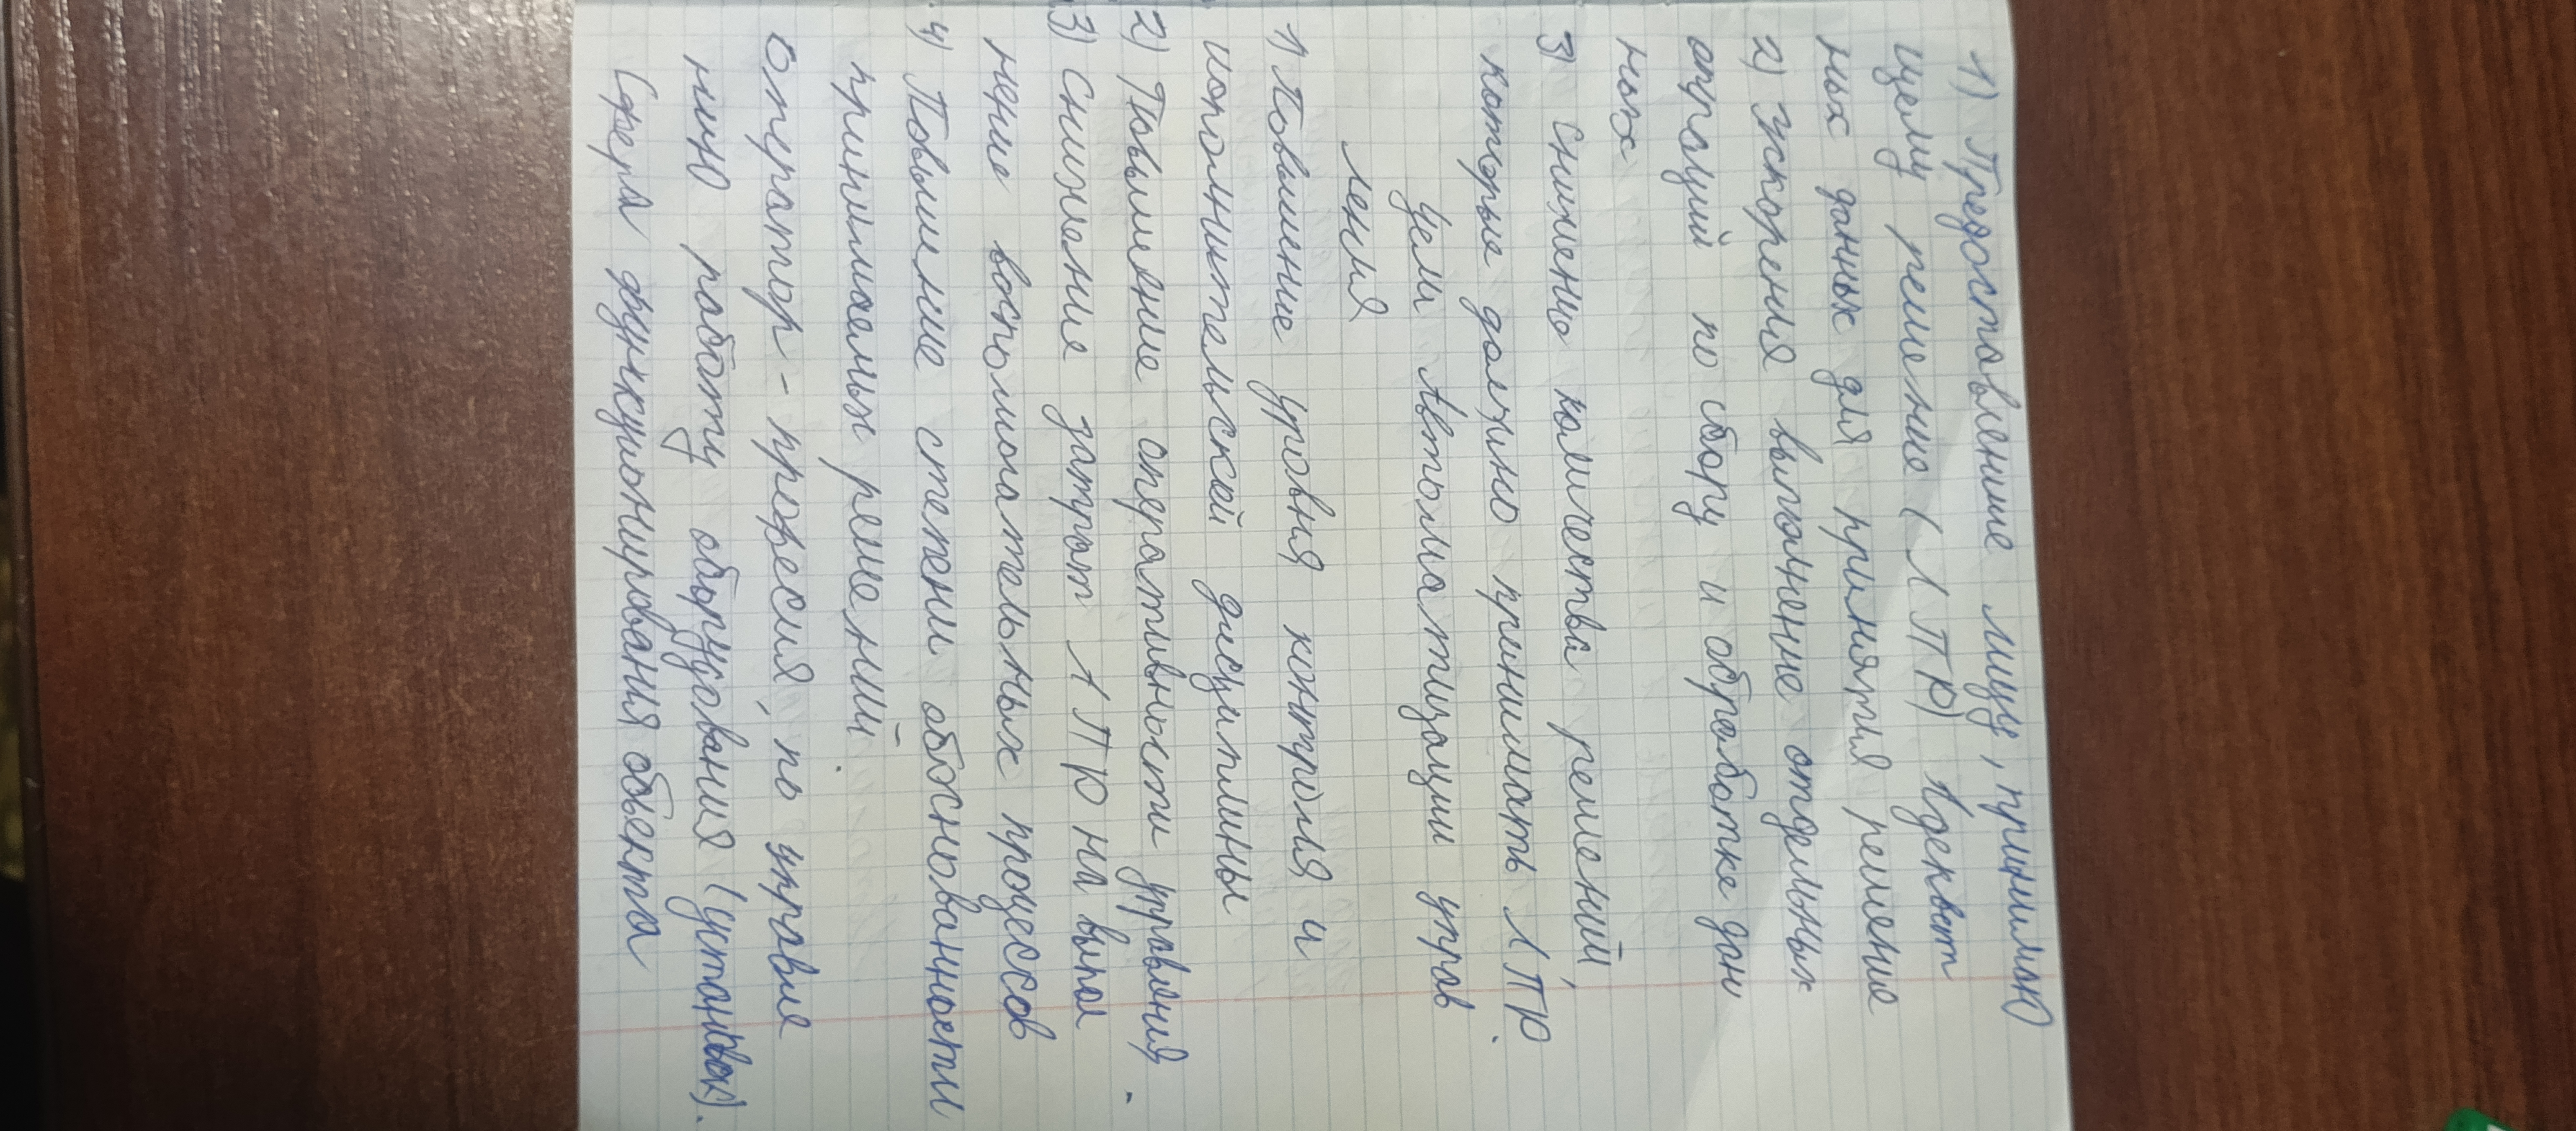 1) Предоставление лицу, принимаю
щему решение (ЛПР) Адекват
ных данных для принятия решение
2) Ускорения выполнение отдельных
операций по сбору и обработке дан
ных
3) Снижению количества решений,
которые должно принимать ЛПР.
Цели Автоматизации управ
ления
1) Повышение уровня контроля и
исполнительской дисциплины
2) Повышение оперативности управления.
3) Снижение затрат ЛПР на выпол
нение вспомогательных процессов
4) Повышение степени обоснованности
принимаемых решений.
Оператор - професия, по управле
нию работу оборудования (установок).
Сфера функционирования объекта